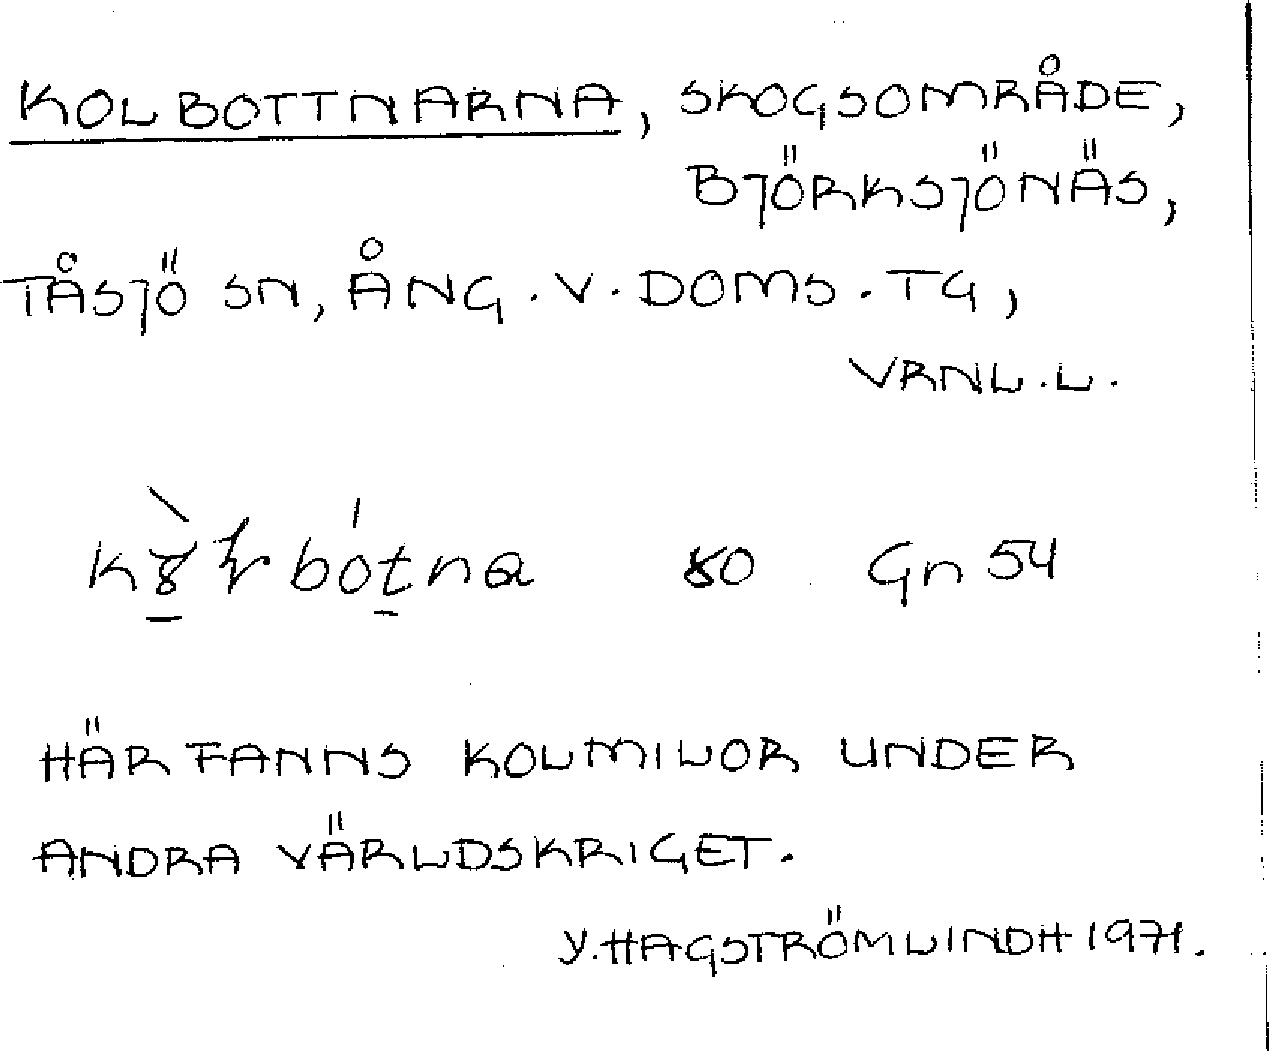 KOLBOTTNARNA, SKOGSOMRÅDE,
BJÖRKSJÖNÄS,
TÅSJÖ SN, ÅNG. V. DOMS. TG,
VRNL.L.
80 Gn 54
HÄR FANNS KOLMILOR UNDER
ANDRA VÄRLDSKRIGET.
Y. HAGSTRÖMLINDH 1971.